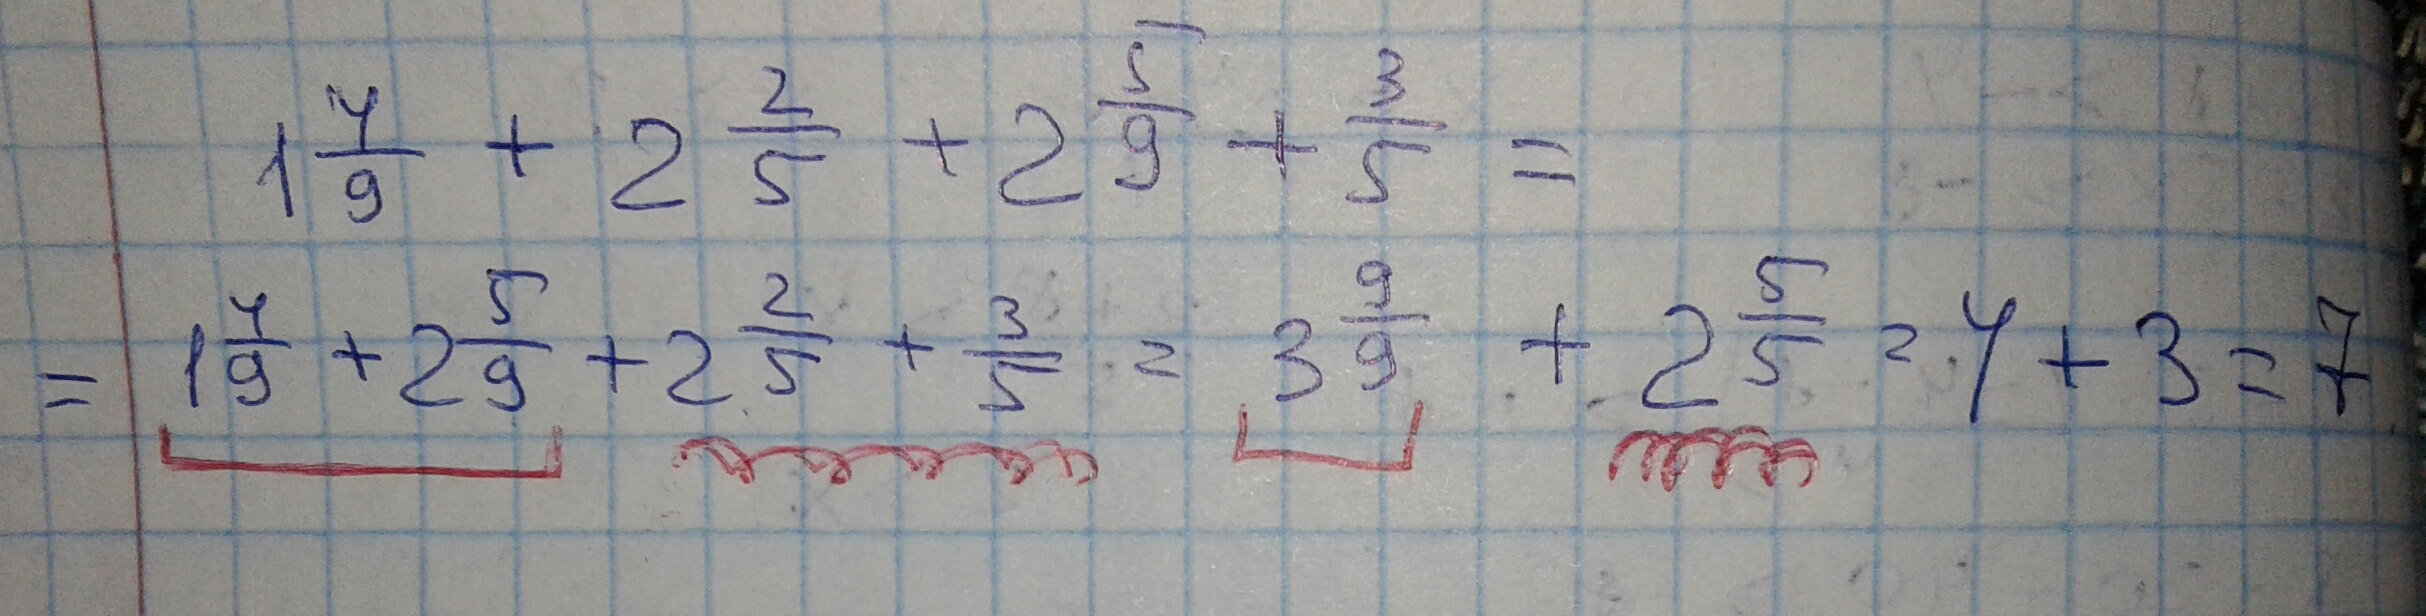 1 4/9 + 2 2/5 + 2 5/9 + 3/5 =
= 1 4/9 + 2 5/9 + 2 2/5 + 3/5 = 3 9/9 + 2 5/5 = 4 + 3 = 7